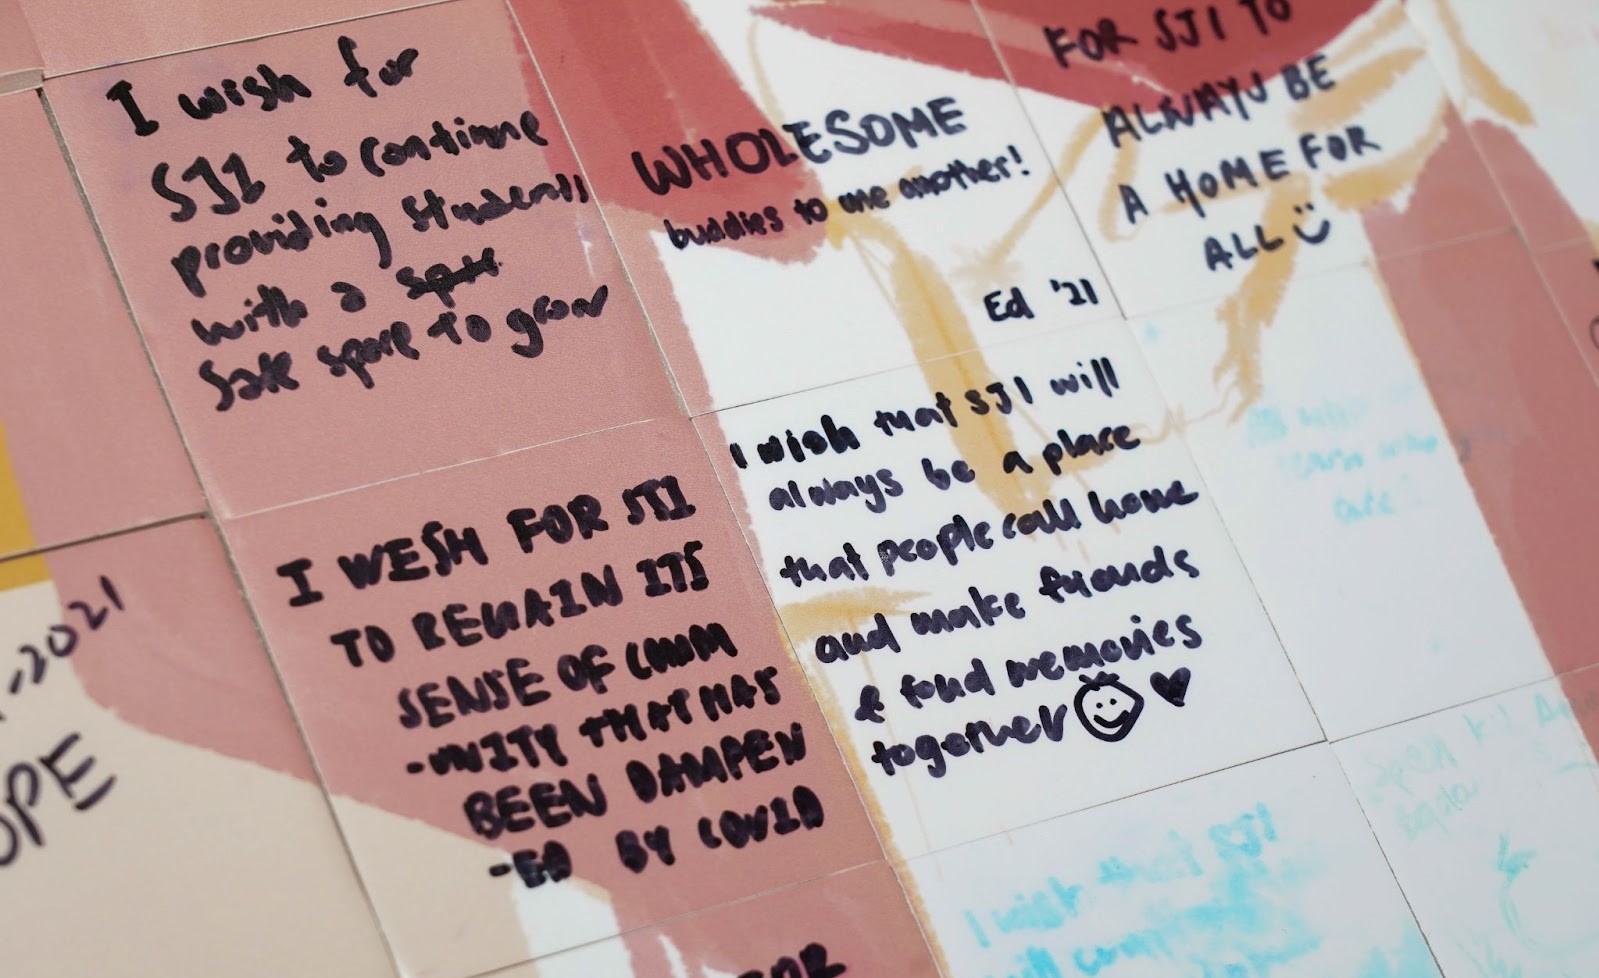 I wish for
SJI to continue
providing students
with a
safe space to grow
WHOLESOME
buddies to one another!
Ed '21
FOR SJI TO
ALWAYS BE
A HOME FOR
ALL
I WISH FOR SJI
TO REMAIN ITS
SENSE OF COMM
-UNITY THAT HAS
BEEN DAMPEN
-ED BY COVID
I wish that SJI will
always be a place
that people call home
and make friends
& fond memories
together
2021
OPE
I wish that SJI
will